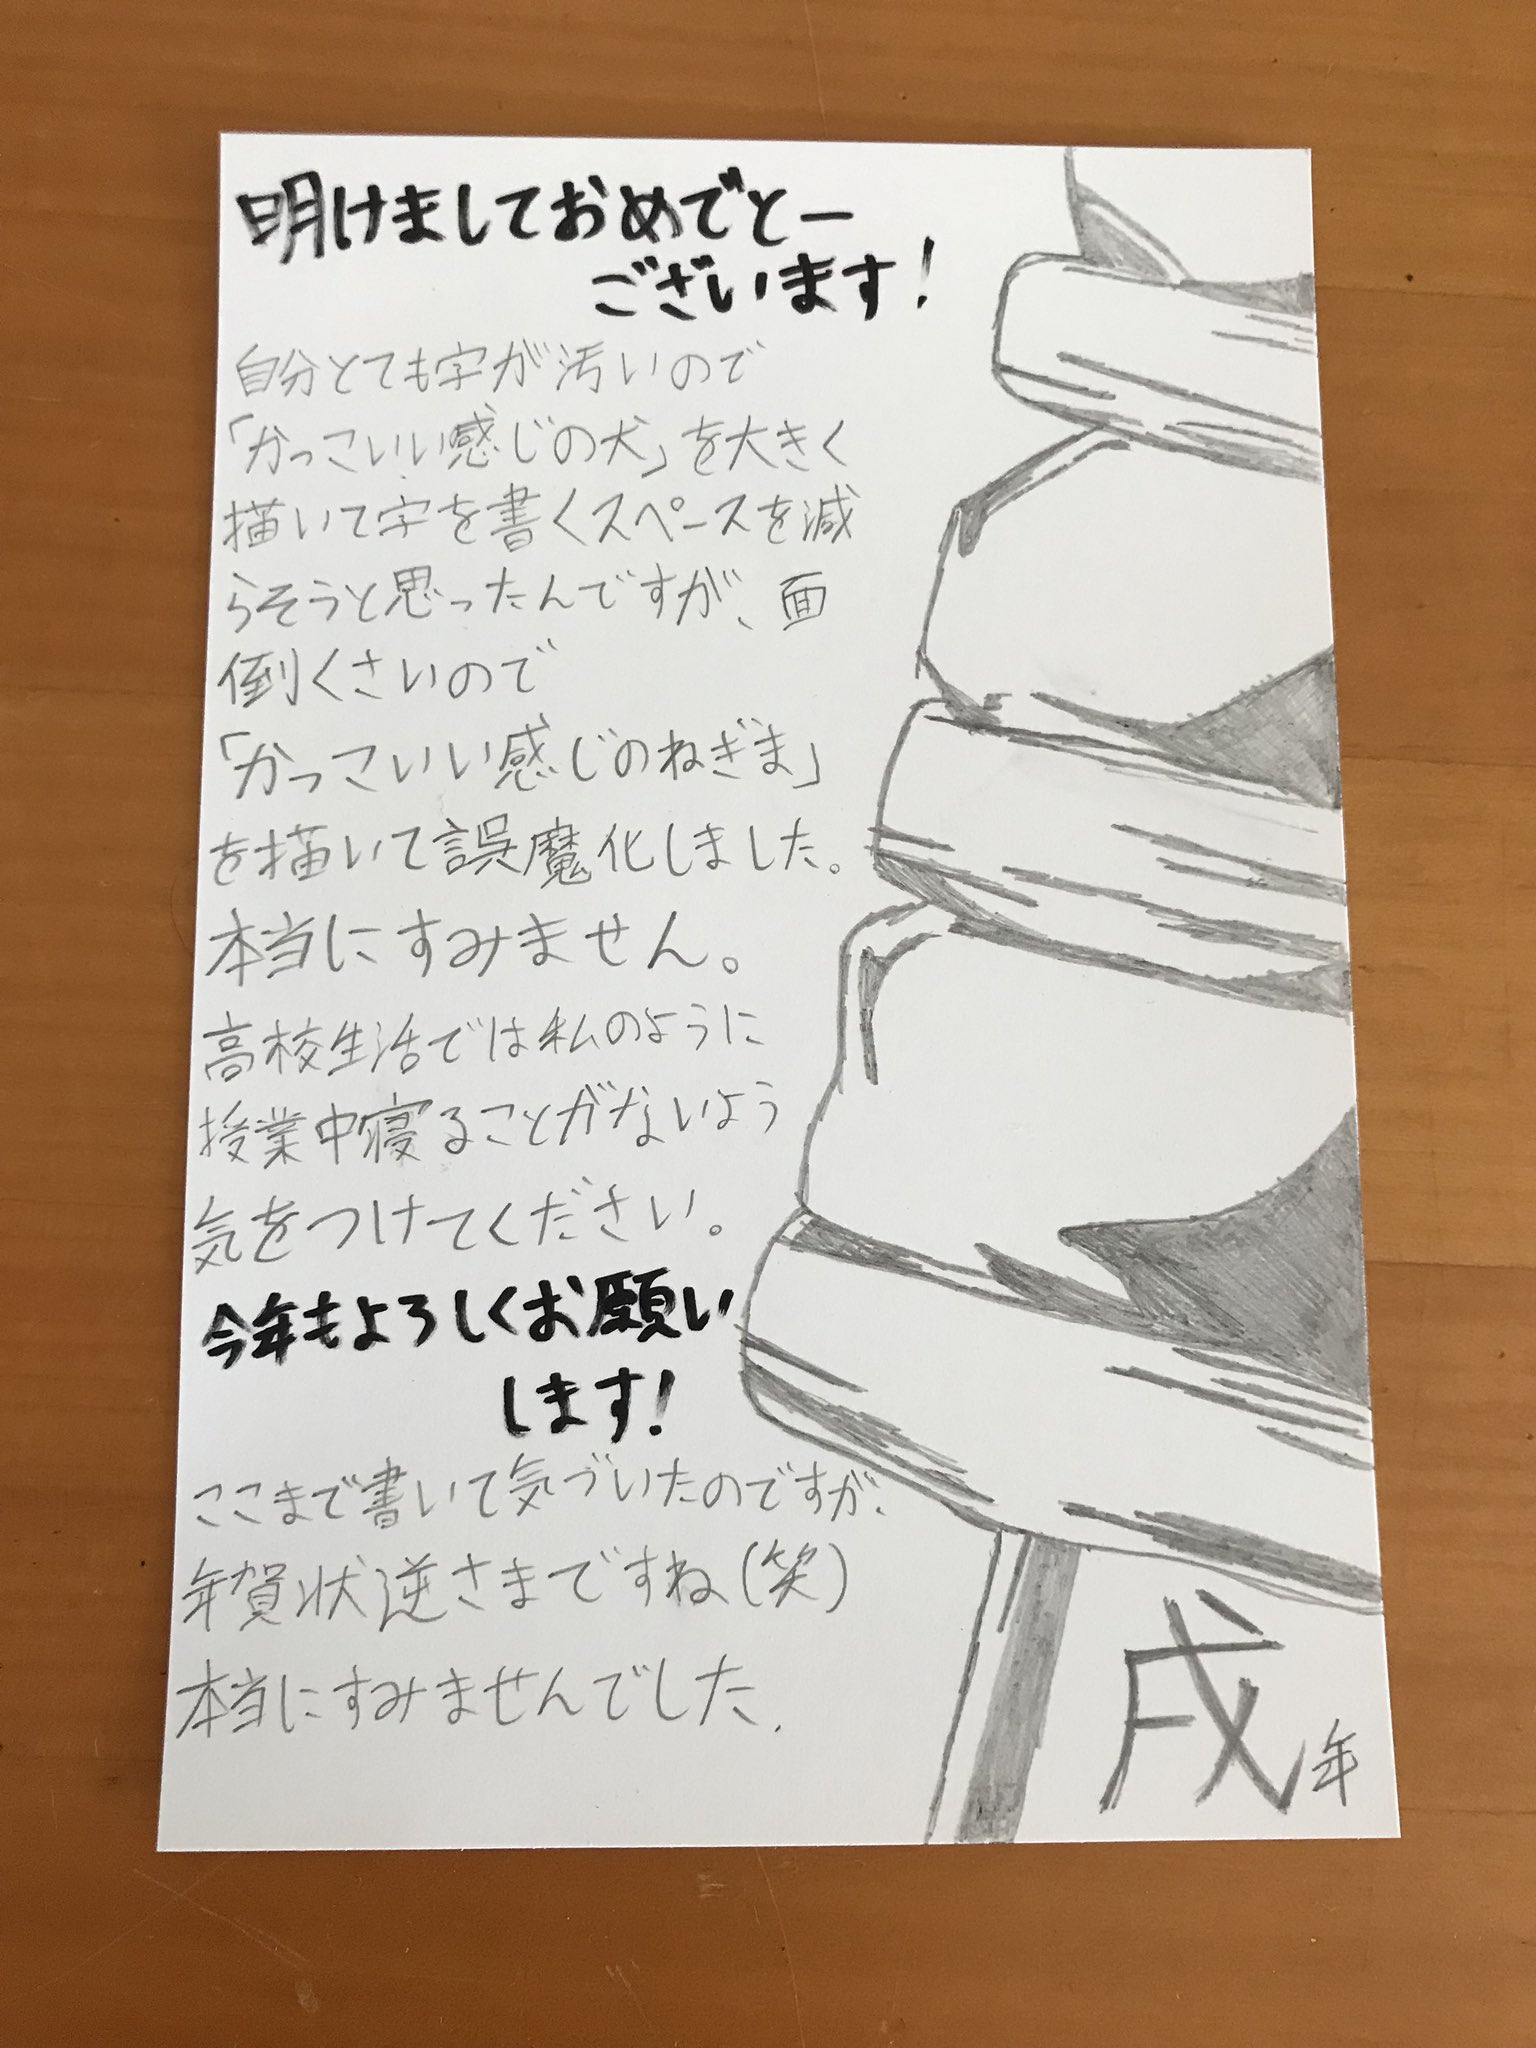 明けましておめでとー
ございます!
自分とても字が汚いので
「かっこいい感じの犬」を大きく
描いて字を書くスペースを減
らそうと思ったんですが、面
倒くさいので
「かっこいい感じのねぎま」
を描いて誤魔化しました。
本当にすみません。
高校生活では私のように
授業中寝ることがないよう
気をつけてください。
今年もよろしくお願い
します!
ここまで書いて気づいたのですが、
年賀状逆さまですね(笑)
本当にすみませんでした.
戌年